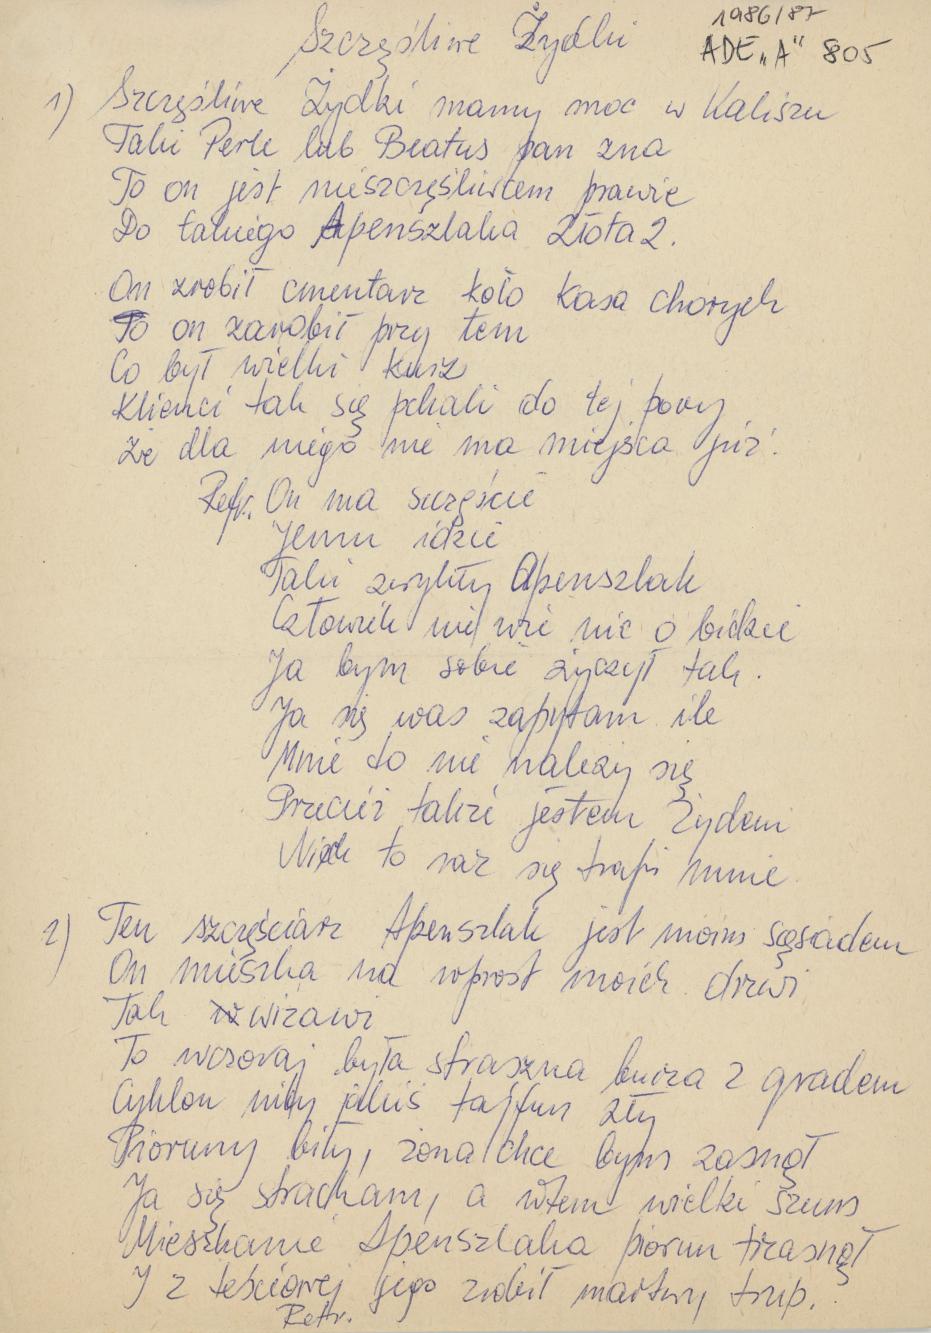 Szczęśliwe Żydki
1986/87
ADE „A" 805
1) Szczęśliwe Żydki mamy moc w Kaliszu
Taki Perle lub Beatus pan zna
To on jest nieszczęśliwcem prawie
Do takiego Apenszlaka Złota 2.
On zrobił cmentarz koło kasa chorych
To on zarobił przy tem
Co był wielki kusz
Klienci tak się pchali do tej pory
Że dla niego nie ma miejsca już!
Refr. On ma szczęście
Jemu idzie
Taki zwykły Apenszlak
Człowiek nie wie nic o bidzie
Ja bym sobie życzył tak.
Ja się was zapytam ile
Mnie to nie należy się
Przecież także jestem Żydem
Niech to raz się trafi mnie
2) Ten szczęściarz Apenszlak jest moim sąsiadem
On mieszka na wprost moich drzwi
Tak wizawi
To wczoraj była straszna burza z gradem
Cyklon niby jakiś tajfun zły
Pioruny biły, żona chce bym zasnął
Ja się stracham, a wtem wielki szum
Mieszkanie Apenszlaka piorun trzasnął
I z teściowej jego zrobił martwy trup.
Refr.